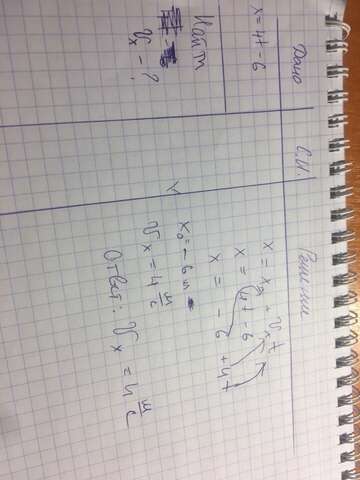 Дано
x = 4t - 6
Найти
υx - ?
С.И.
Решение
x = x₀ + υx t
x = 4t - 6
x = - 6 + 4t
x₀ = - 6 м
υx = 4 м/с
Ответ: υx = 4 м/с